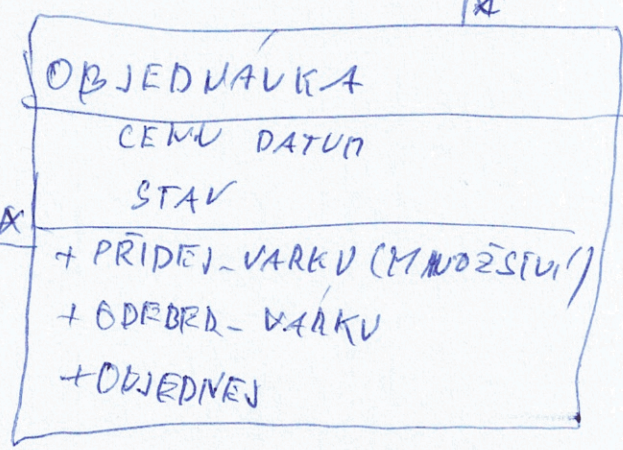 *
OBJEDNÁVKA
CENU DATUM
STAV
*
+ PŘIDEJ_VARKU (MNOŽSTVÍ)
+ ODEBER_VÁRKU
+OBJEDNEJ